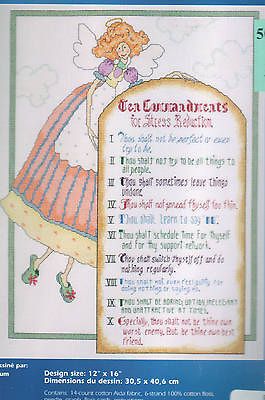 5
Ten Commandments
for Stress Reduction
I Thou shalt not be perfect or even
try to be.
II Thou shalt not try to be all things to
all people.
III Thou shalt sometimes leave things
undone.
IV Thou shalt not spread thyself too thin.
V Thou shalt learn to say NO.
VI Thou shalt schedule time for thyself
and for thy support network.
VII Thou shalt switch thyself off and do
nothing regularly.
VIII Thou shalt not even feel guilty for
doing nothing or saying no.
IX Thou shalt be boring, untidy, inelegant
and unattractive at times.
X Especially, thou shalt not be thine own
worst enemy. But be thine own best
friend.
ssiné par:
um
Design size: 12" x 16"
Dimensions du dessin: 30,5 x 40,6 cm
Contains: 14-count cotton Aida fabric, 6-strand 100% cotton floss,